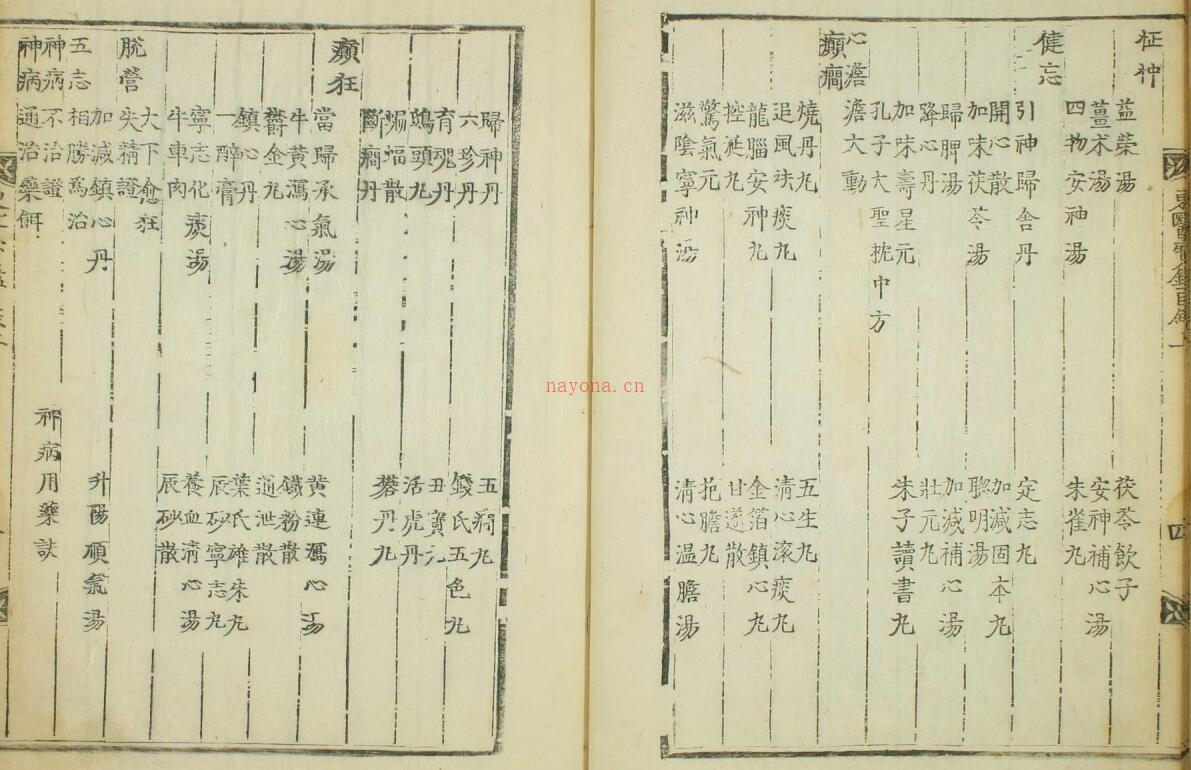 東醫寶鑑目錄
四
怔忡
益榮湯　茯苓飲子
薑朮湯　安神補心湯
四物安神湯　朱雀丸
健忘
引神歸舍丹　定志丸
開心散　加減固本丸
加味茯苓湯　聰明湯
歸脾湯　加減補心湯
降心丹　壯元丸
加味壽星元　朱子讀書丸
孔子大聖枕中方
心澹澹大動
癲癇
燒丹丸　五生丸
追風祛痰丸　清心滾痰丸
龍腦安神丸　金箔鎮心丸
控涎丸　甘遂散
驚氣元　抱膽丸
滋陰寧神湯　清心温膽湯
歸神丹　五癇丸
六珍丹　錢氏五色丸
育魂丹　丑寶元
鴟頭丸　活虎丹
蝙蝠散　礬丹丸
斷癇丹
癲狂
當歸承氣湯　黄連瀉心湯
牛黄瀉心湯　鐵粉散
鬱金丸　通泄散
鎮心丹　葉氏雄朱丸
一醉膏　辰砂寧志丸
寧志化痰湯　養血清心湯
牛車肉　辰砂散
大下愈狂
脫營失精證
五志相勝爲治
加減鎮心丹　升陽順氣湯
神病不治證
神病通治藥餌　神病用藥訣
nayona.cn